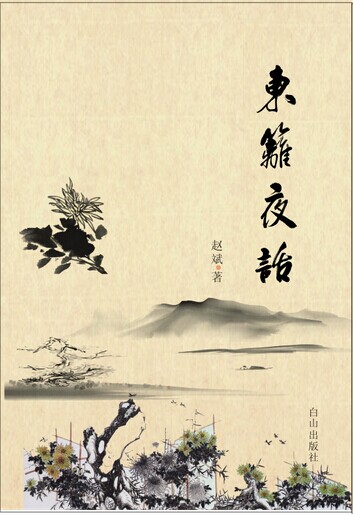 東籬夜話
赵斌•著
白山出版社